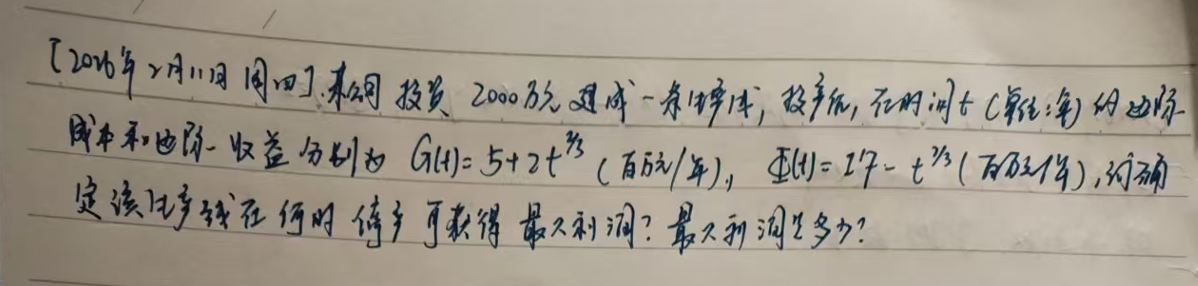 [2026年2月11日 周四].某公司 投资 2000万元 建成一条生产线, 投产后, 在时间t(单位:年)的边际
成本和边际收益分别为 G(t)=5+2t^{2/3} (百万元/年), Φ(t)=17-t^{2/3}(百万元/年),试确
定该生产线在何时停产可获得最大利润?最大利润是多少?